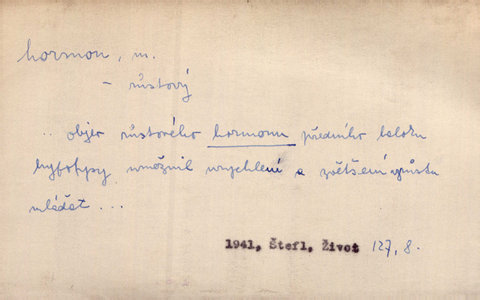 hormon, m.
– růstový
.. objev růstového hormonu předního laloku
hypofysy umožnil urychlení a zvětšení vzrůstu
mláďat ...
1941, Štefl, Život 127, 8.